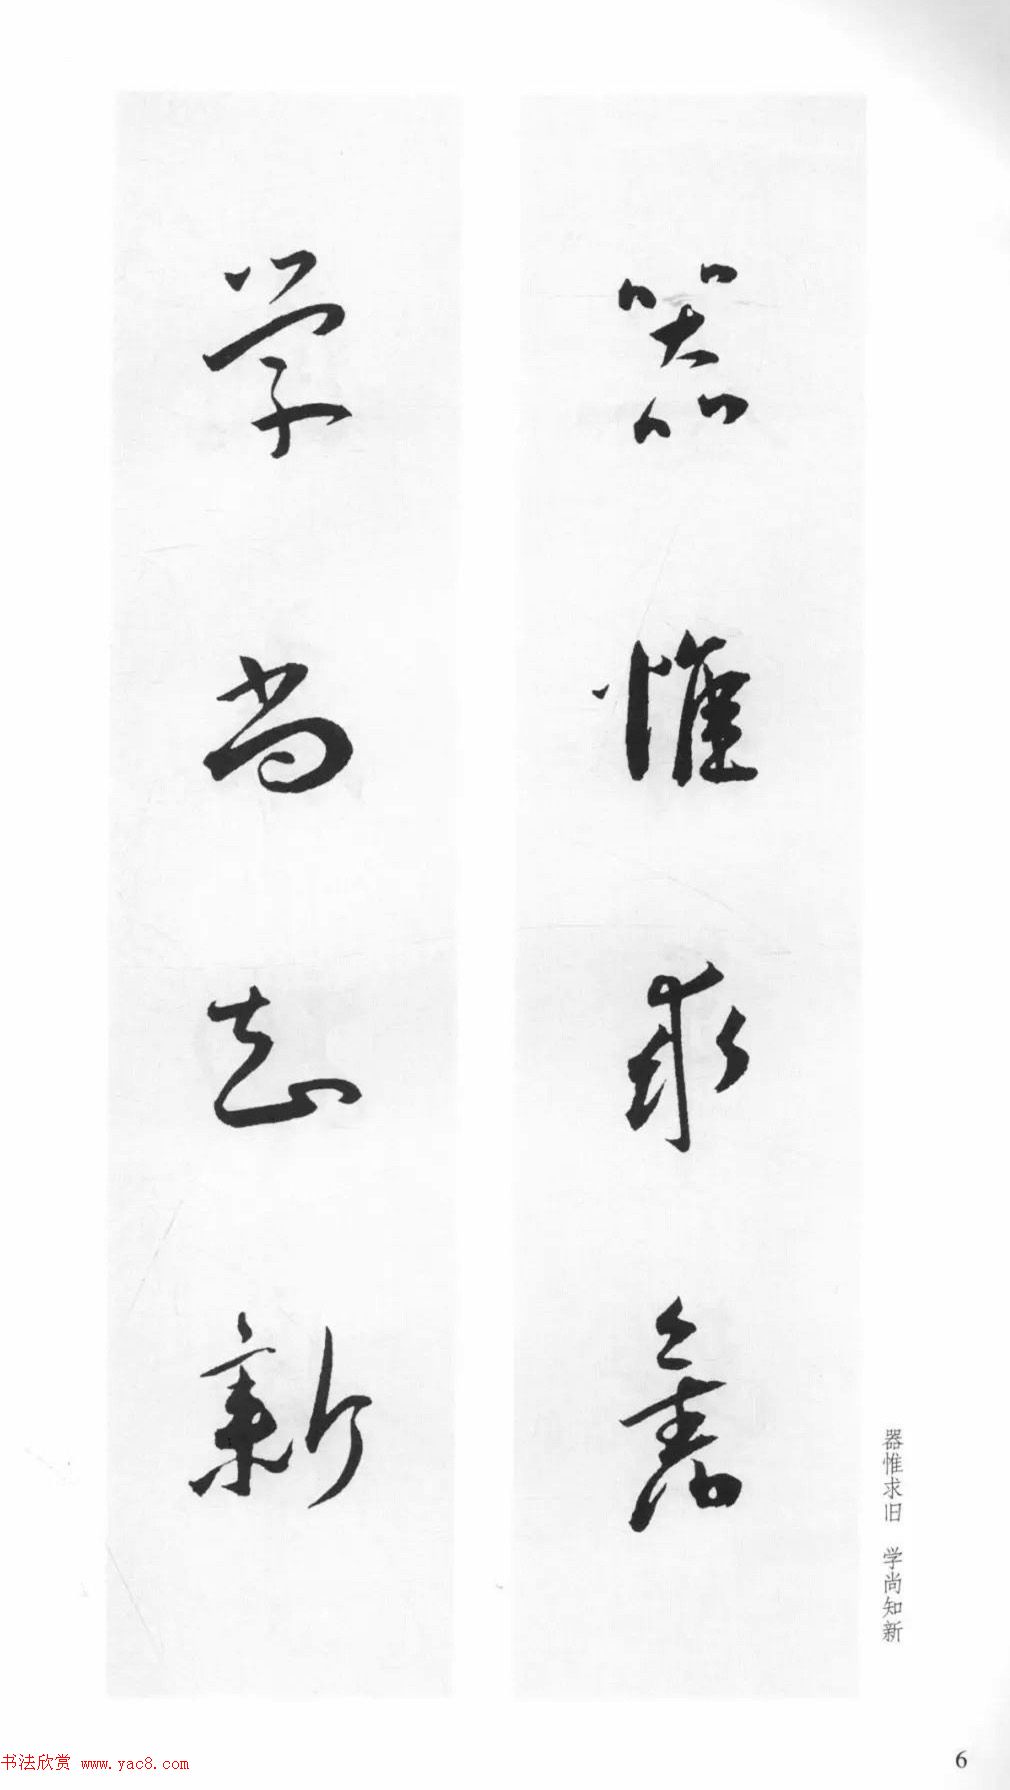 器惟求舊
学尚知新
器惟求旧 学尚知新
书法欣赏 www.yac8.com
6